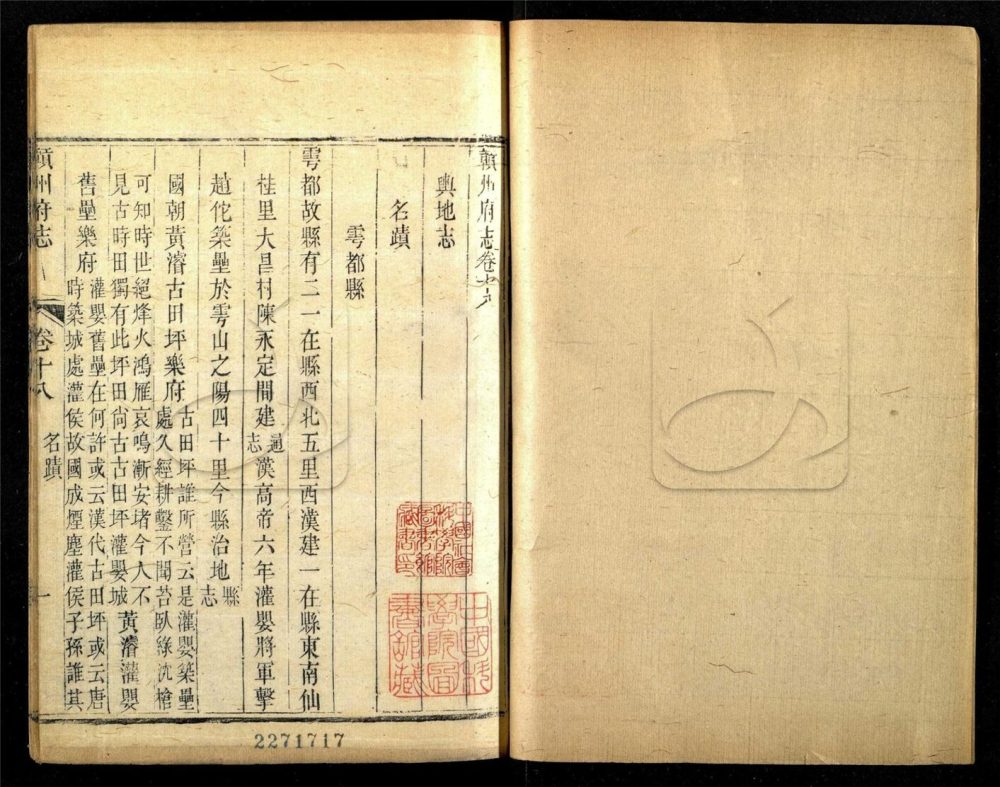 贛州府志卷十八
輿地志
名蹟
雩都縣
雩都故縣有二一在縣西北五里西漢建一在縣東南仙
桂里大昌村陳永定間建通志漢高帝六年灌嬰將軍擊
趙佗築壘於雩山之陽四十里今縣治地縣志
國朝黃濬古田坪樂府古田坪誰所營云是灌嬰築壘
處久經耕鑿不聞苔臥綠沈槍
可知時世絕烽火鴻雁哀鳴漸安堵今人不
見古時田獨有此坪田尙古古田坪灌嬰城黃濬灌嬰
舊壘樂府灌嬰舊壘在何許或云漢代古田坪或云唐
時築城處灌侯故國成煙塵灌侯子孫誰其
贛州府志
卷十八
名蹟
一
中國科學院圖書館藏
2271717